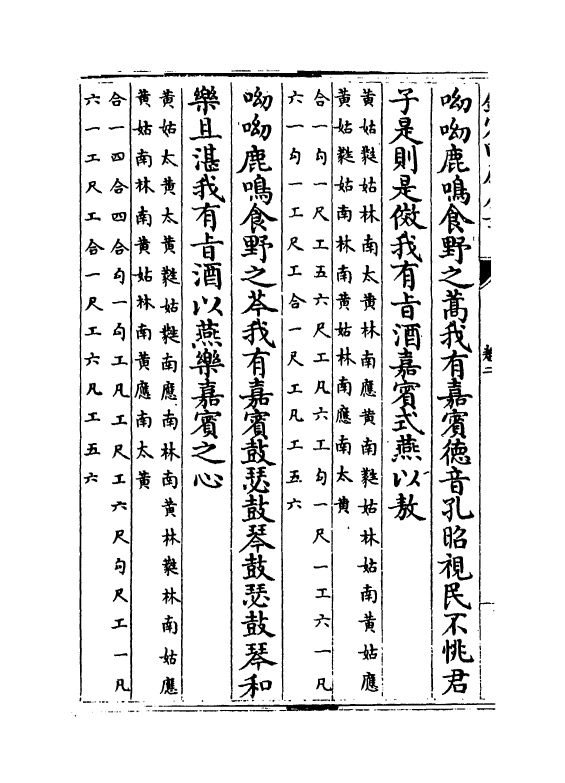 卷二
呦呦鹿鳴食野之蒿我有嘉賓德音孔昭視民不恌君
子是則是傚我有旨酒嘉賓式燕以敖
黄姑蕤姑林南太黄林南應黄南蕤姑林姑南黄姑應
黄姑蕤姑南林南黄姑林南應南太黄
合一勾一尺工五六尺工凡六工勾一尺一工六一凡
六一勾一工尺工合一尺工凡工五六
呦呦鹿鳴食野之芩我有嘉賓鼓瑟鼓琴鼓瑟鼓琴和
樂且湛我有旨酒以燕樂嘉賓之心
黄姑太黄太黄蕤姑蕤南應南林南黄林蕤林南姑應
黄姑南林南黄姑林南黄應南太黄
合一四合四合勾一勾工凡工尺工六尺勾尺工一凡
六一工尺工合一尺工六凡工五六